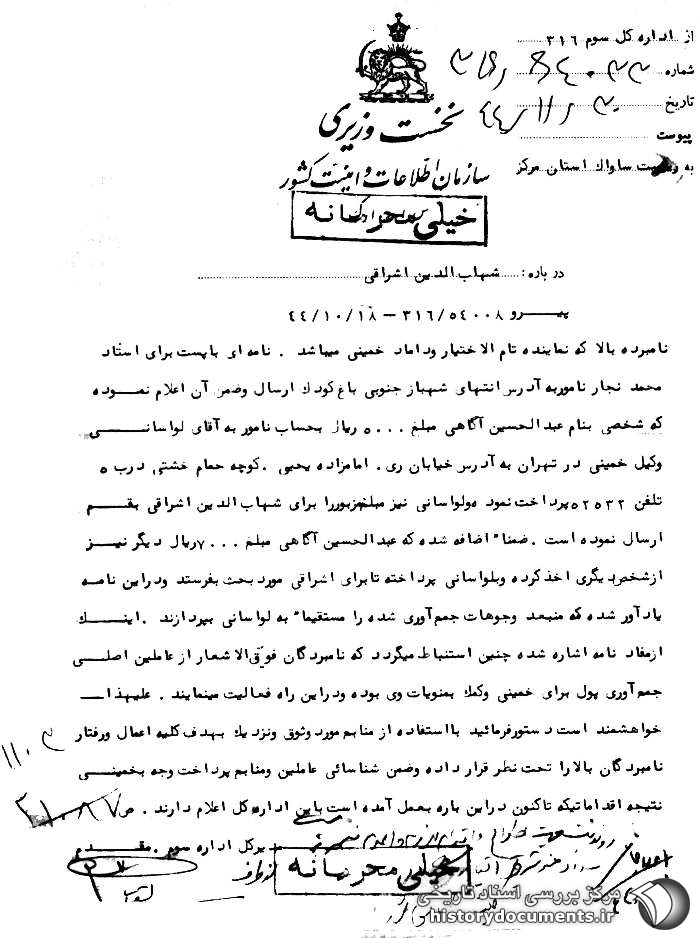 از اداره کل سوم ۳۱۶
شماره
تاریخ
پیوست
به ریاست ساواک استان مرکز
نخست وزیری
سازمان اطلاعات و امنیت کشور
خیلی محرمانه
درباره: شهاب الدین اشراقی
پیرو ۳۱۶/۵۴۰۰۸ – ۴۴/۱۰/۱۸
نامبرده بالا که نماینده تام الاختیار وداماد خمینی میباشد . نامه ای باپست برای استاد
محمد نجار ناموربه آدرس انتهای شهباز جنوبی باغ کودک ارسال وضمن آن اعلام نموده
که شخصی بنام عبدالحسین آگاهی مبلغ ۵۰۰۰ ریال بحساب نامور به آقای لواسانی
وکیل خمینی در تهران به آدرس خیابان ری . امامزاده یحیی . کوچه حمام خشتی درب ۵
تلفن ۵۲۵۳۲ پرداخت نمود هولواسانی نیز مبلغ مزبوررا برای شهاب الدین اشراقی بقم
ارسال نموده است . ضمناً اضافه شده که عبدالحسین آگاهی مبلغ ۷۰۰۰ ریال دیگر نیز
ازشخص دیگری اخذ کرده وبلواسانی پرداخته تابرای اشراقی مورد بحث بفرستد ودراین نامه
یادآور شده که منبعد وجوهات جمع آوری شده را مستقیماً به لواسانی بپردازند . اینک
ازمفاد نامه اشاره شده چنین استنباط میگردد که نامبردگان فوق الاشعار از عاملین اصلی
جمع آوری پول برای خمینی وکمک بمنویات وی بوده ودراین راه فعالیت مینمایند . علیهذا
خواهشمند است دستورفرمائید بااستفاده از منابع مورد وثوق ونزدیک بهدف کلیه اعمال ورفتار
نامبردگان بالارا تحت نظر قرار داده وضمن شناسائی عاملین ومنابع پرداخت وجه بخمینی
نتیجه اقداماتیکه تاکنون دراین باره بعمل آمده است باین اداره کل اعلام دارند . ص
مدیرکل اداره سوم . مقدم
از طرف
خیلی محرمانه
مرکز بررسی اسناد تاریخی
historydocuments.ir